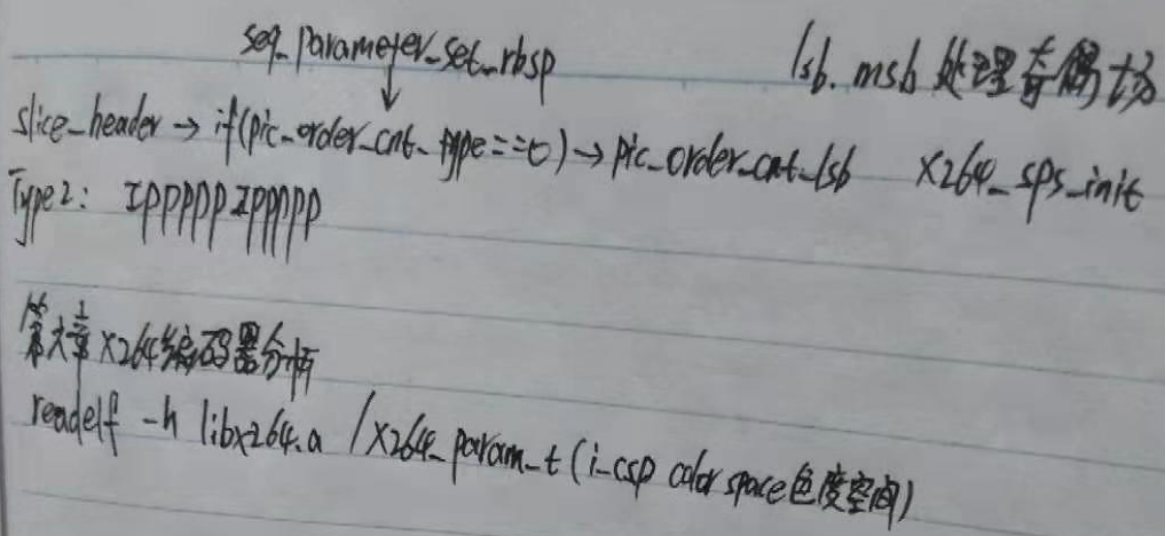 seq_parameter_set_rbsp
lsb. msb 处理奇偶场
slice_header → if(pic_order_cnt_type==0) → pic_order_cnt_lsb x264_sps_init
Type2: IPPPPPIPPPPP
第六章 x264编码器分析
readelf -h libx264.a / x264_param_t (i_csp color space色度空间)